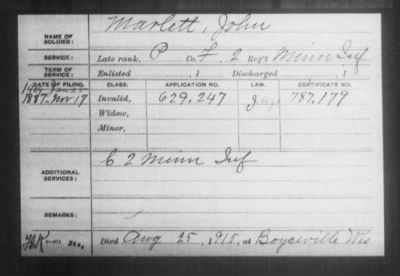 NAME OF SOLDIER: Marlett, John
SERVICE: Late rank, P Co. F, 2 Reg't Minn Inf
TERM OF SERVICE: Enlisted , 1 Discharged , 1
DATE OF FILING. CLASS. APPLICATION NO. LAW. CERTIFICATE NO.
1887-Nov 17 Invalid, 629.247 787.179
Widow,
Minor,
ADDITIONAL SERVICES: C 2 Minn Inf
REMARKS:
Died Aug 25, 1915, at Boyceville Wis